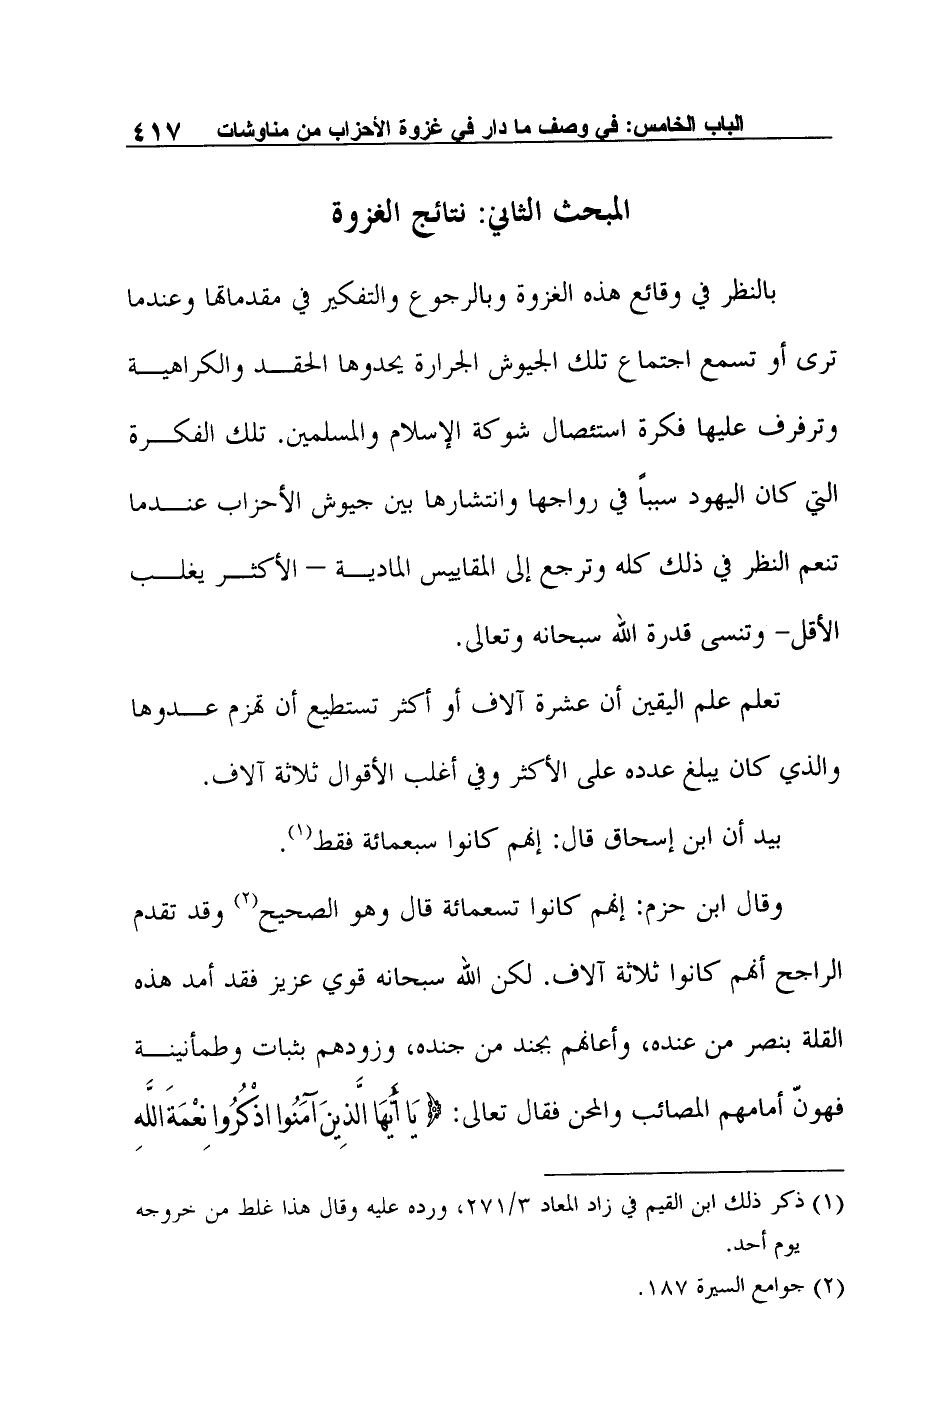 الباب الخامس: في وصف ما دار في غزوة الأحزاب من مناوشات ٤١٧
المبحث الثاني: نتائج الغزوة
بالنظر في وقائع هذه الغزوة وبالرجوع والتفكير في مقدماتها وعندما
ترى أو تسمع اجتماع تلك الجيوش الجرارة يحدوها الحقـد والكراهيـة
وترفرف عليها فكرة استئصال شوكة الإسلام والمسلمين. تلك الفكـرة
التي كان اليهود سبباً في رواجها وانتشارها بين جيوش الأحزاب عنـدما
تنعم النظر في ذلك كله وترجع إلى المقاييس الماديـة – الأكثـر يغلـب
الأقل– وتنسى قدرة الله سبحانه وتعالى.
تعلم علم اليقين أن عشرة آلاف أو أكثر تستطيع أن تهزم عـدوها
والذي كان يبلغ عدده على الأكثر وفي أغلب الأقوال ثلاثة آلاف.
بيد أن ابن إسحاق قال: إنهم كانوا سبعمائة فقط(١).
وقال ابن حزم: إنهم كانوا تسعمائة قال وهو الصحيح(٢) وقد تقدم
الراجح أنهم كانوا ثلاثة آلاف. لكن الله سبحانه قوي عزيز فقد أمد هذه
القلة بنصر من عنده، وأعانهم بجند من جنده، وزودهم بثبات وطمأنينـة
فهونّ أمامهم المصائب والمحن فقال تعالى: ﴿ يَا أَيُّهَا الَّذِينَ آمَنُوا اذْكُرُوا نِعْمَةَ اللَّهِ
(١) ذكر ذلك ابن القيم في زاد المعاد ٢٧١/٣، ورده عليه وقال هذا غلط من خروجه
يوم أحد.
(٢) جوامع السيرة ١٨٧.